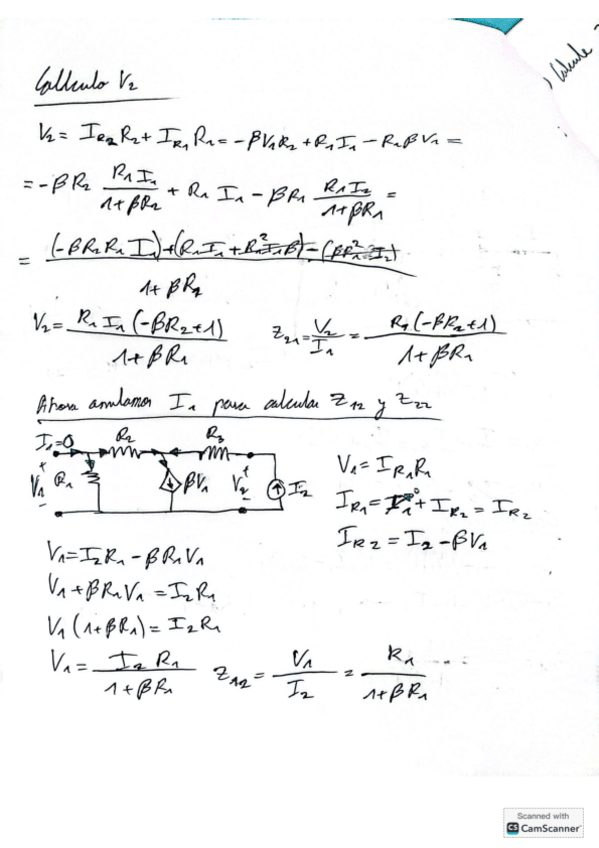 Calculo V2
V2 = IR2 R2 + IR1 R1 = -βV1R2 + R1I1 - R1βV1 =
= -βR2 R1I1/(1+βR2) + R1 I1 - βR1 R1I2/(1+βR1) =
= (-βR2R1I1)+(R1I1+R1²I1β)-(βR1²I2)/(1+βR2)
V2 = R1I1(-βR2+1)/(1+βR1) Z21 = V2/I1 = R1(-βR2+1)/(1+βR1)
Ahora anulamos I1 para calcular Z12 y Z22
I1=0 R2 R3
+ V1 - R1 βV1 + V2 - I2
V1 = IR1R1
IR1 = I1 + IR2 = IR2
IR2 = I2 - βV1
V1 = I2R1 - βR1V1
V1 + βR1V1 = I2R1
V1(1+βR1) = I2R1
V1 = I2 R1/(1+βR1) Z12 = V1/I2 = R1/(1+βR1)
Scanned with
CS CamScanner